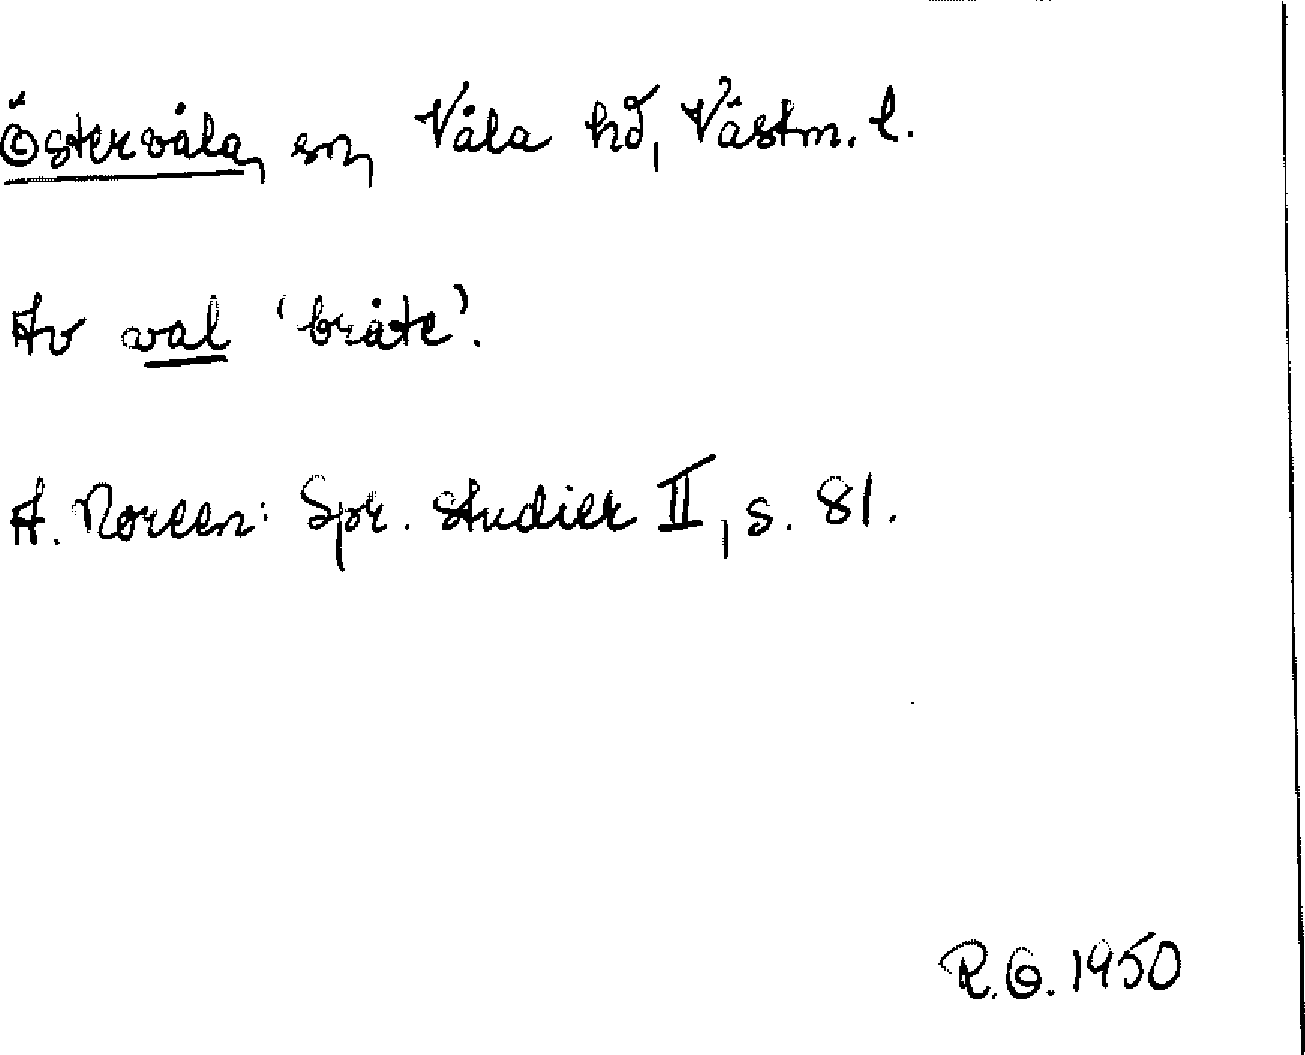 Östervåla, sn, Våla hd, Västm. l.
Av val 'bråte'.
A. Noreen: Spr. studier II, s. 81.
R.G. 1950